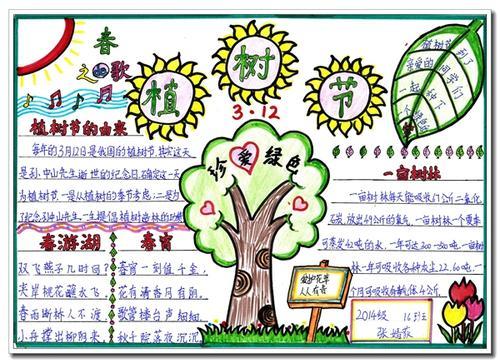 春
之歌
植树节
3.12
植树节的由来
每年的3月12日是我国的植树节,其实这天
是孙中山先生逝世的纪念日,确定这一天
为植树节,一是从植树的季节考虑;二是为
了纪念孙中山先生一生提倡植树造林的
珍爱绿色
植树节到了
亲爱的同学们
一起种下
一亩树林
一亩树林每天能吸收67公斤二氧化
碳,放出49公斤的氧气,一亩树林一个夏季
可蒸发42吨的水,一年可达300-500吨,一亩树
林一年可吸收各种灰尘22-60吨,一
个月可吸收有毒气体4公斤
春游湖
双飞燕子几时回?
夹岸桃花蘸水飞。
春雨断桥人不渡,
小舟撑出柳阴来。
春宵
春宵一刻值千金,
花有清香月有阴。
歌管楼台声细细,
秋千院落夜沉沉。
爱护花草
人人有责
2014级 16班